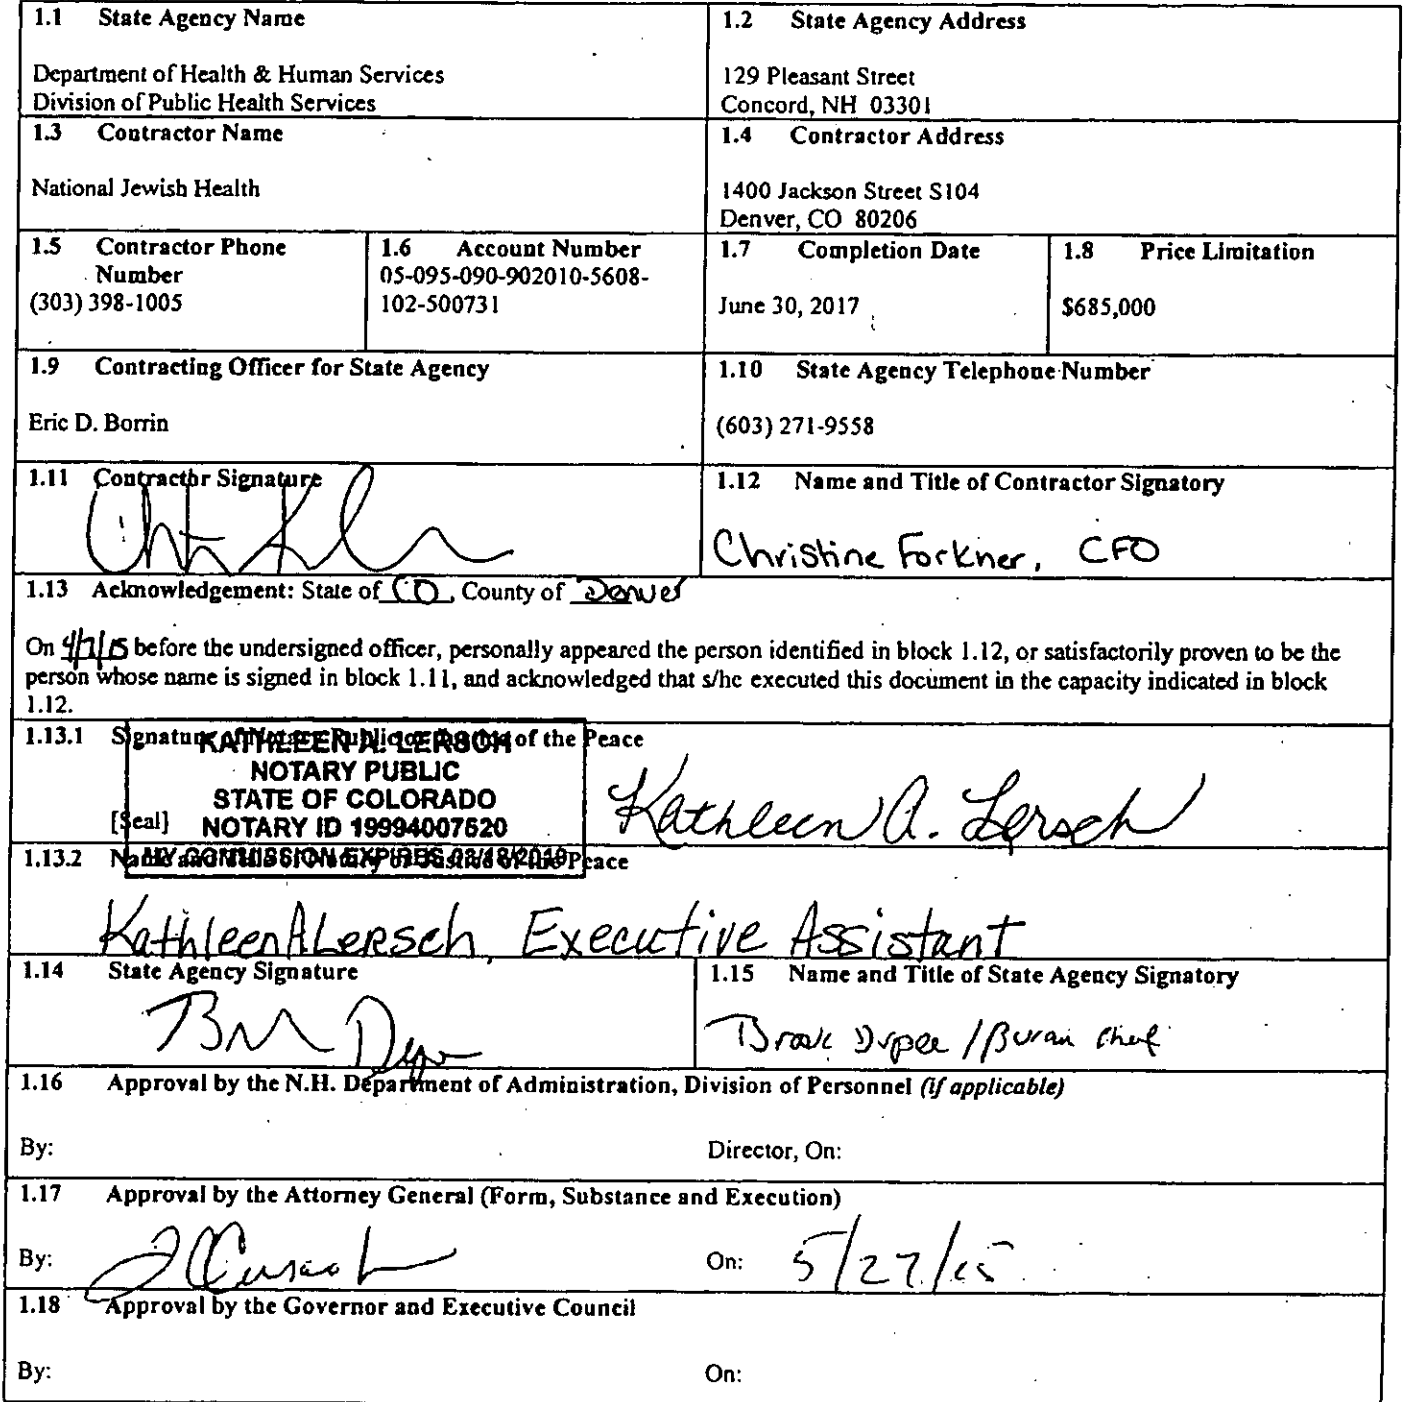 1.1 State Agency Name
Department of Health & Human Services
Division of Public Health Services
1.2 State Agency Address
129 Pleasant Street
Concord, NH 03301
1.3 Contractor Name
National Jewish Health
1.4 Contractor Address
1400 Jackson Street S104
Denver, CO 80206
1.5 Contractor Phone
Number
(303) 398-1005
1.6 Account Number
05-095-090-902010-5608-
102-500731
1.7 Completion Date
June 30, 2017
1.8 Price Limitation
$685,000
1.9 Contracting Officer for State Agency
Eric D. Borrin
1.10 State Agency Telephone Number
(603) 271-9558
1.11 Contractor Signature
1.12 Name and Title of Contractor Signatory
Christine Forkner, CFO
1.13 Acknowledgement: State of CO, County of Denver
On 4/7/15 before the undersigned officer, personally appeared the person identified in block 1.12, or satisfactorily proven to be the
person whose name is signed in block 1.11, and acknowledged that s/he executed this document in the capacity indicated in block
1.12.
1.13.1 Signature of Notary Public or Justice of the Peace
KATHLEEN A. LERSCH
NOTARY PUBLIC
STATE OF COLORADO
[Seal] NOTARY ID 19994007620
MY COMMISSION EXPIRES
Kathleen A. Lersch
1.13.2 Name and Title of Notary or Justice of the Peace
Kathleen A Lersch, Executive Assistant
1.14 State Agency Signature
1.15 Name and Title of State Agency Signatory
Brook Dupee / Bureau Chief
1.16 Approval by the N.H. Department of Administration, Division of Personnel (if applicable)
By:
Director, On:
1.17 Approval by the Attorney General (Form, Substance and Execution)
By:
On: 5/27/15
1.18 Approval by the Governor and Executive Council
By:
On: